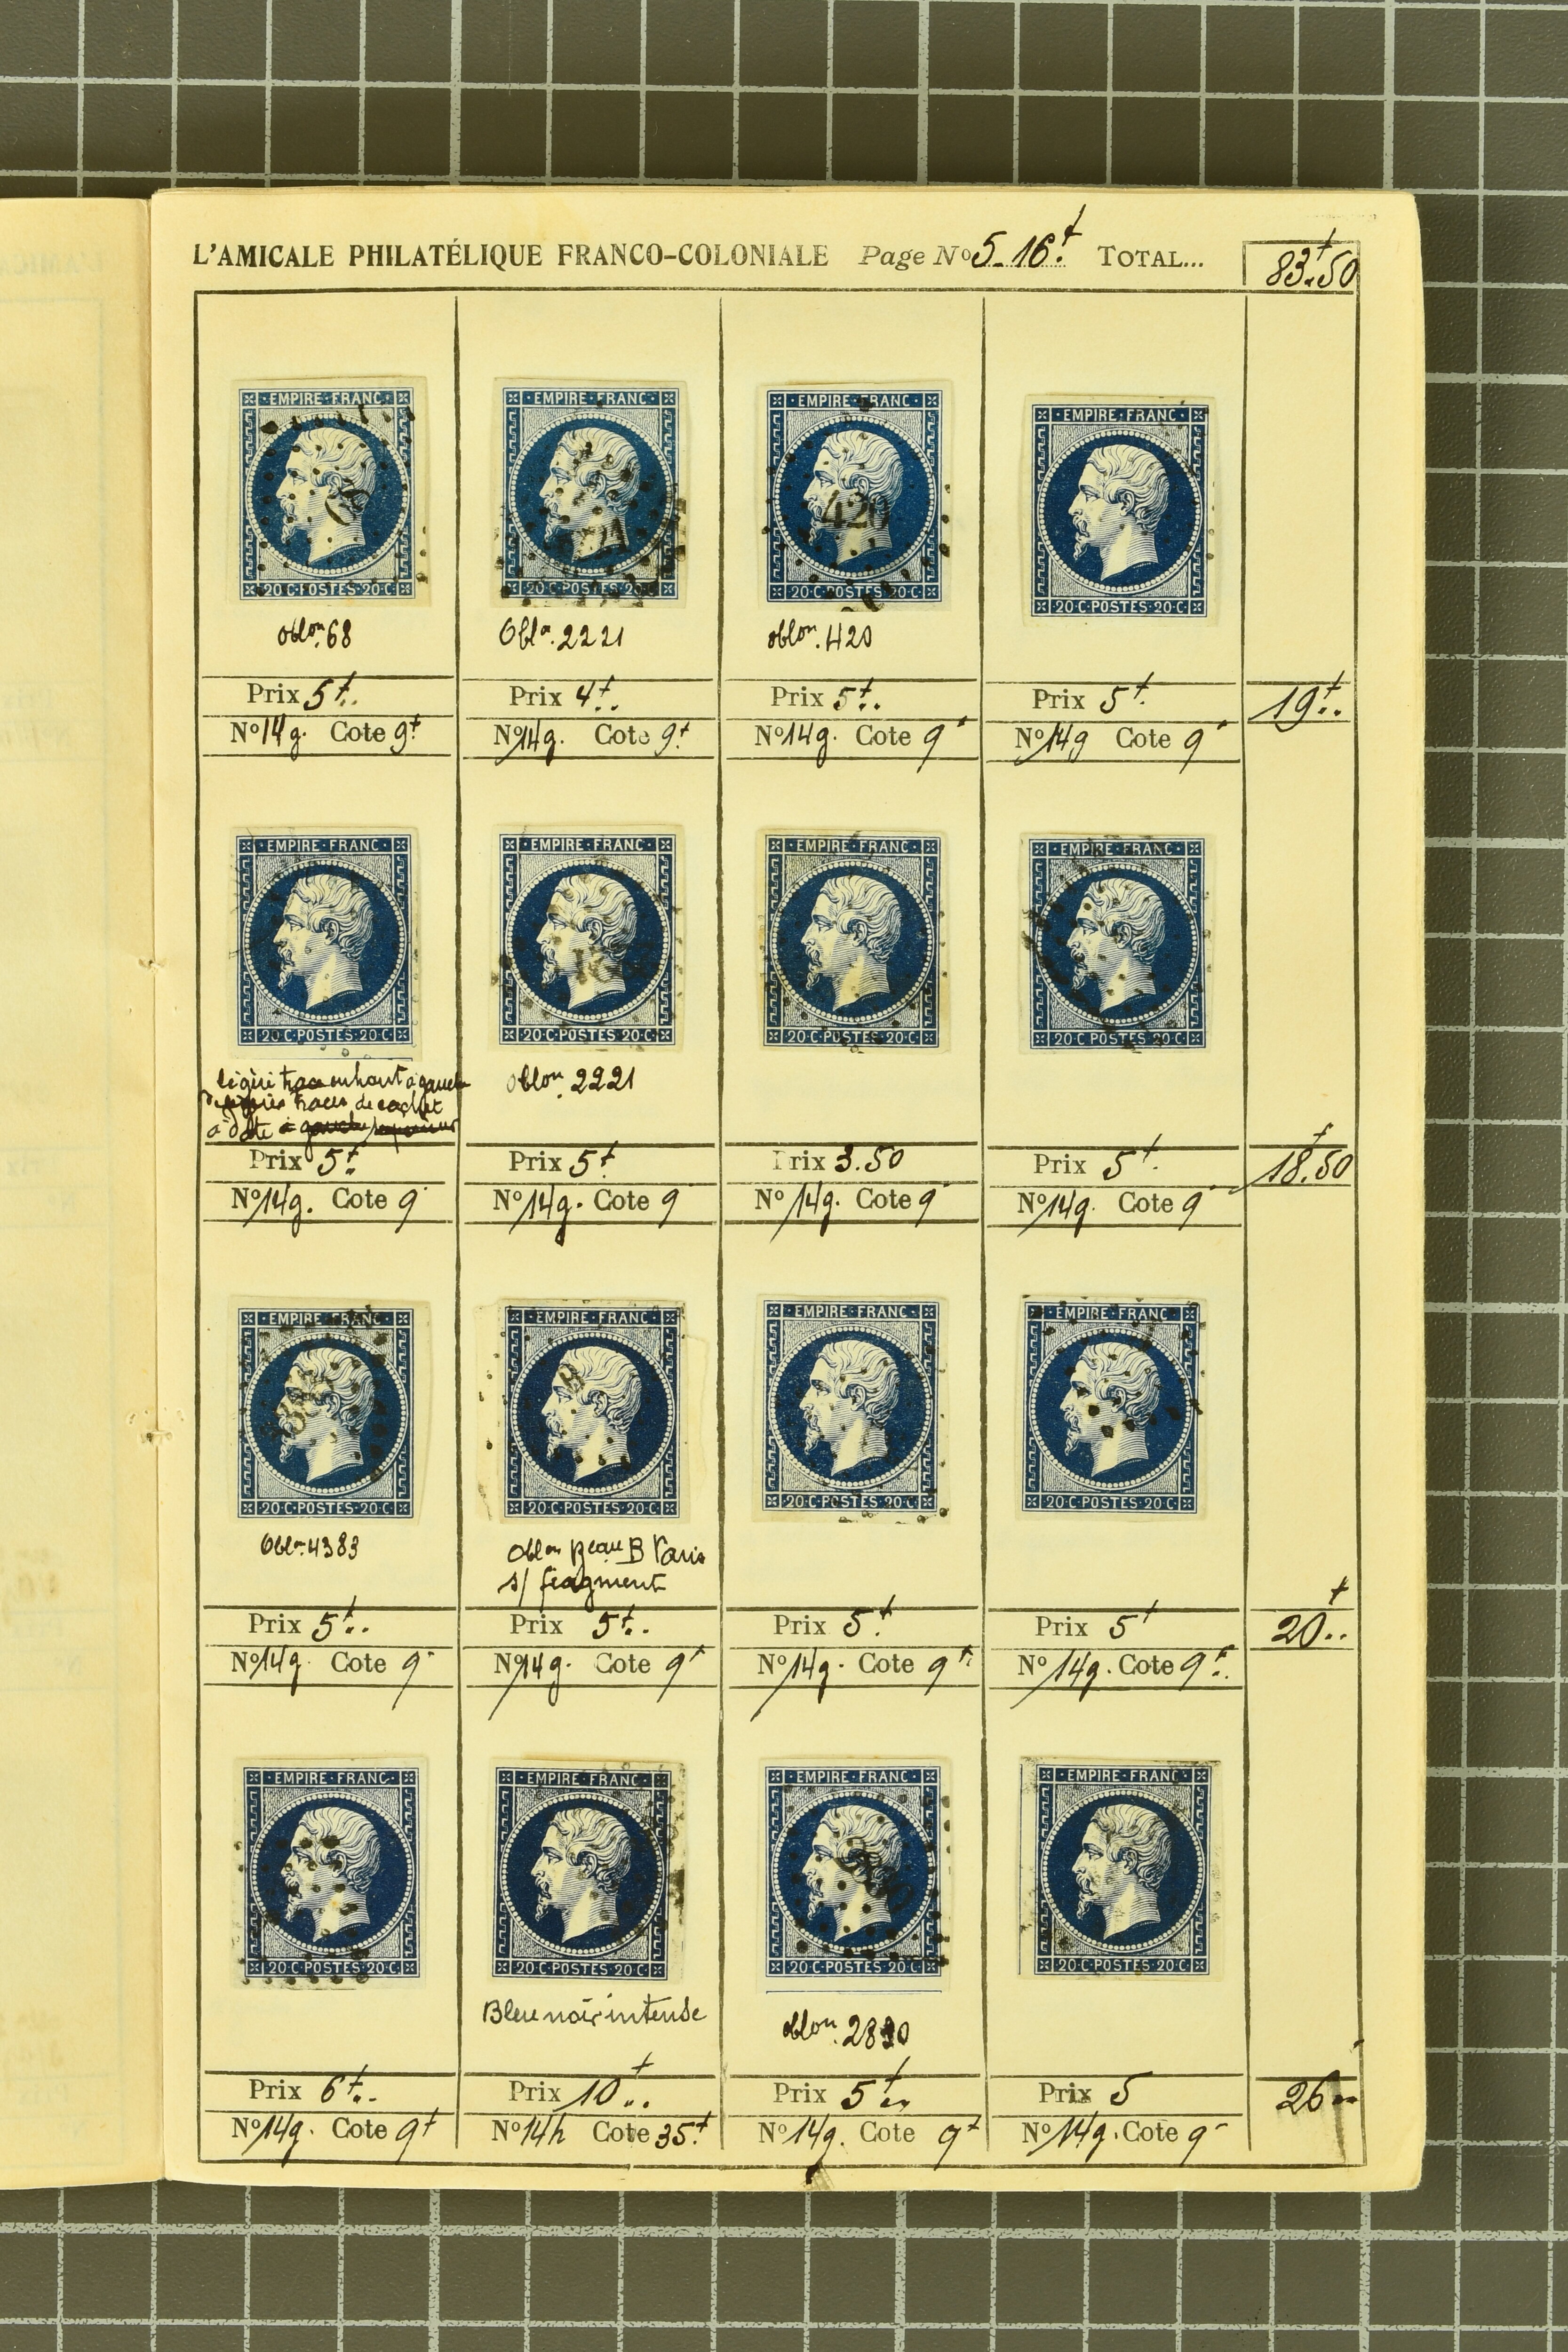 L'AMICALE PHILATÉLIQUE FRANCO-COLONIALE Page No 5_16f TOTAL... 83f50
EMPIRE FRANC EMPIRE FRANC EMPIRE FRANC EMPIRE FRANC
68 420
20 C POSTES 20 C 20 C POSTES 20 C 20 C POSTES 20 C 20 C POSTES 20 C
Oblon. 68 Oblon. 2221 oblon. 420
Prix 5f.. Prix 4f.. Prix 5f.. Prix 5f. 19f..
No 14g. Cote 9f No 14g. Cote 9f No 14g. Cote 9f No 14g Cote 9f
EMPIRE FRANC EMPIRE FRANC EMPIRE FRANC EMPIRE FRANC
20 C POSTES 20 C 20 C POSTES 20 C 20 C POSTES 20 C 20 C POSTES 20 C
légère trace en haut à gauche oblon. 2221
traces de cachet
à date à gauche
Prix 5f.. Prix 5f Prix 3.50 Prix 5f. 18f.50
No 14g. Cote 9 No 14g. Cote 9 No 14g. Cote 9 No 14g. Cote 9
EMPIRE FRANC EMPIRE FRANC EMPIRE FRANC EMPIRE FRANC
B
20 C POSTES 20 C 20 C POSTES 20 C 20 C POSTES 20 C 20 C POSTES 20 C
Oblon. 4383 Oblon Beau B Paris
s/ fragment
Prix 5f.. Prix 5f.. Prix 5f. Prix 5f 20f..
No 14g. Cote 9 No 14g. Cote 9f No 14g. Cote 9f No 14g. Cote 9f.
EMPIRE FRANC EMPIRE FRANC EMPIRE FRANC EMPIRE FRANC
20 C POSTES 20 C 20 C POSTES 20 C 20 C POSTES 20 C 20 C POSTES 20 C
Bleu noir intense oblon. 2890
Prix 6f.. Prix 10f.. Prix 5f.. Prix 5 26..
No 14g. Cote 9f No 14h Cote 35f No 14g. Cote 9f No 14g. Cote 9